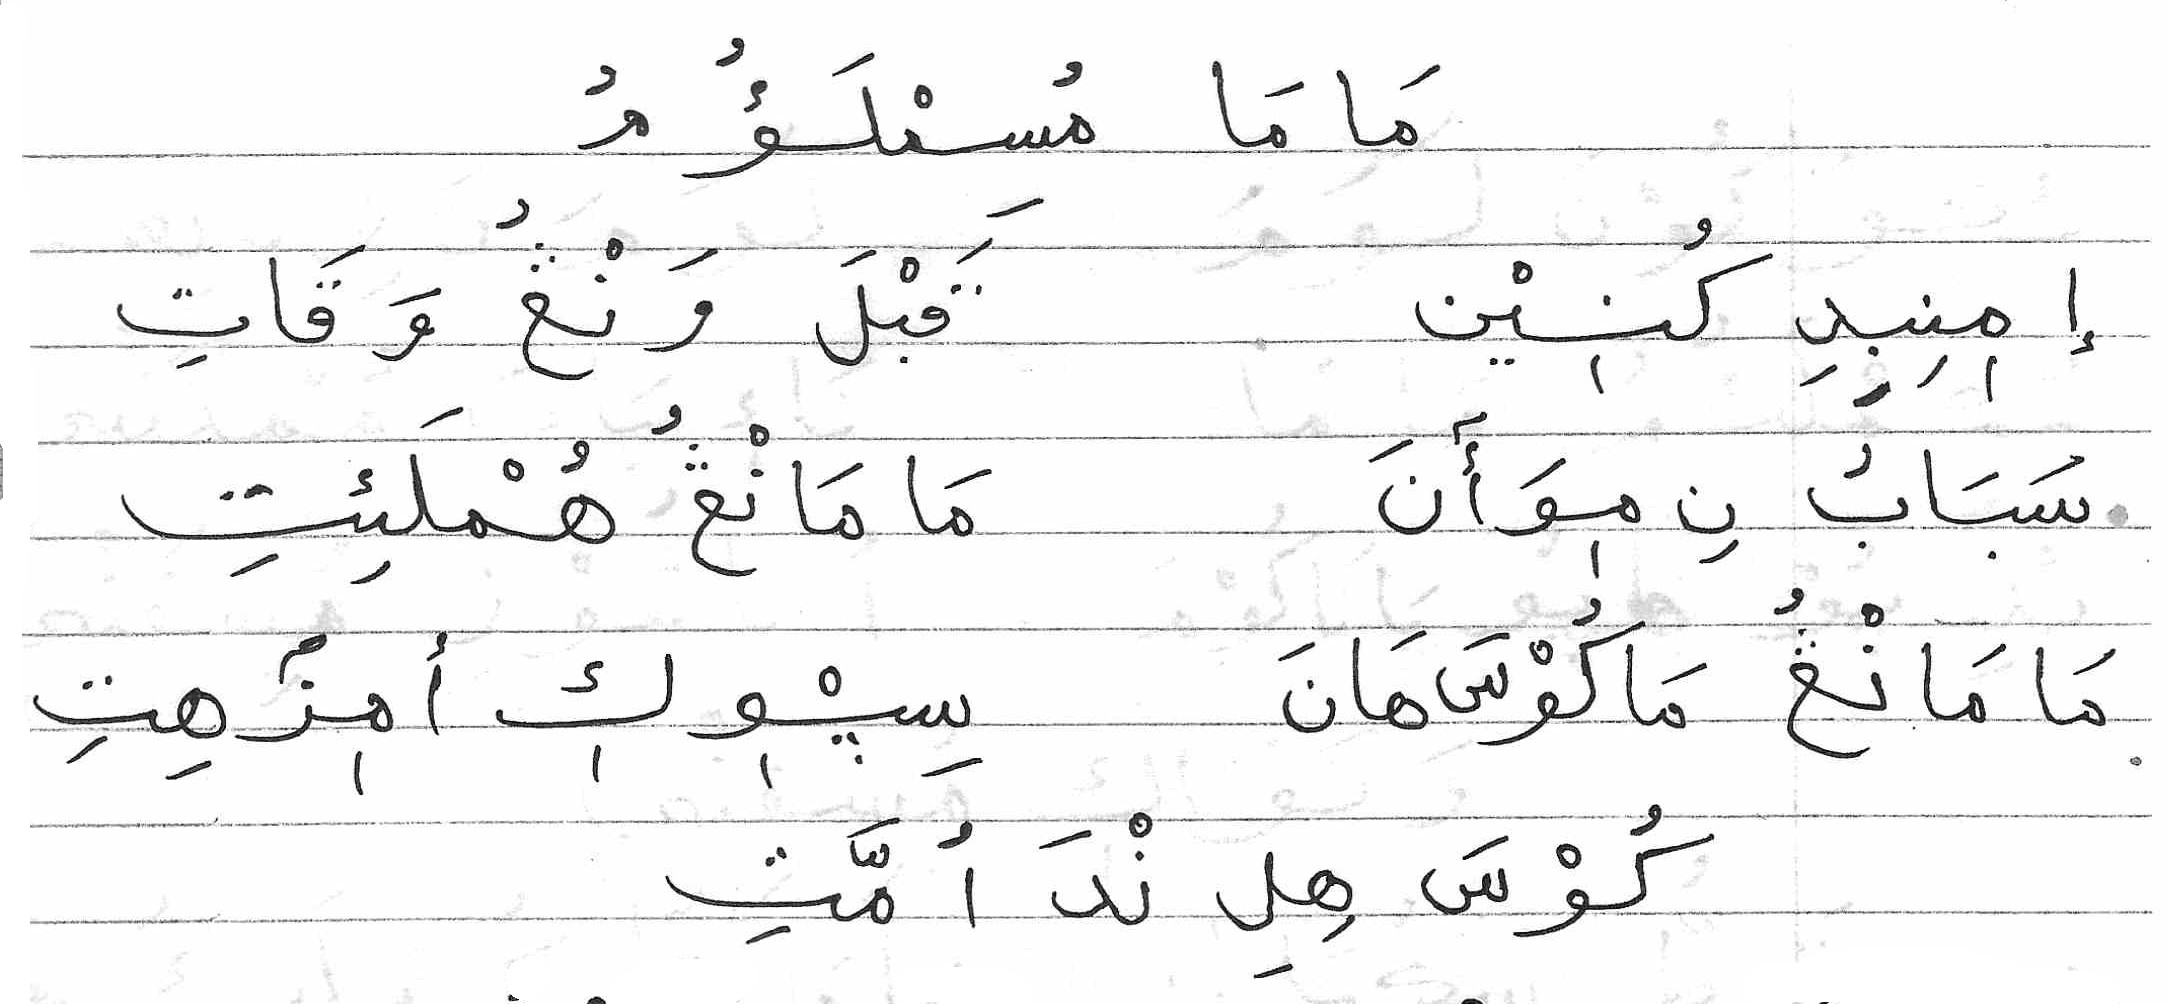 مَا مَا مُسِمْلَؤُ مُ
إ مٖنِبِدِ كُنٖيْن قَبْلَ وَ نْڠُ وَ قَاتِ
سَبَابُ نِ مٖوَأَنَ مَا مَا نْڠُ هُمْلَئِتِ
مَا مَا نْڠُ مَا كُوْسَ هَانَ سِپْوٖ كٖ أمٖزٗهِتِ
كُوْسَ هِلِ نْدَ أُمَّتِ